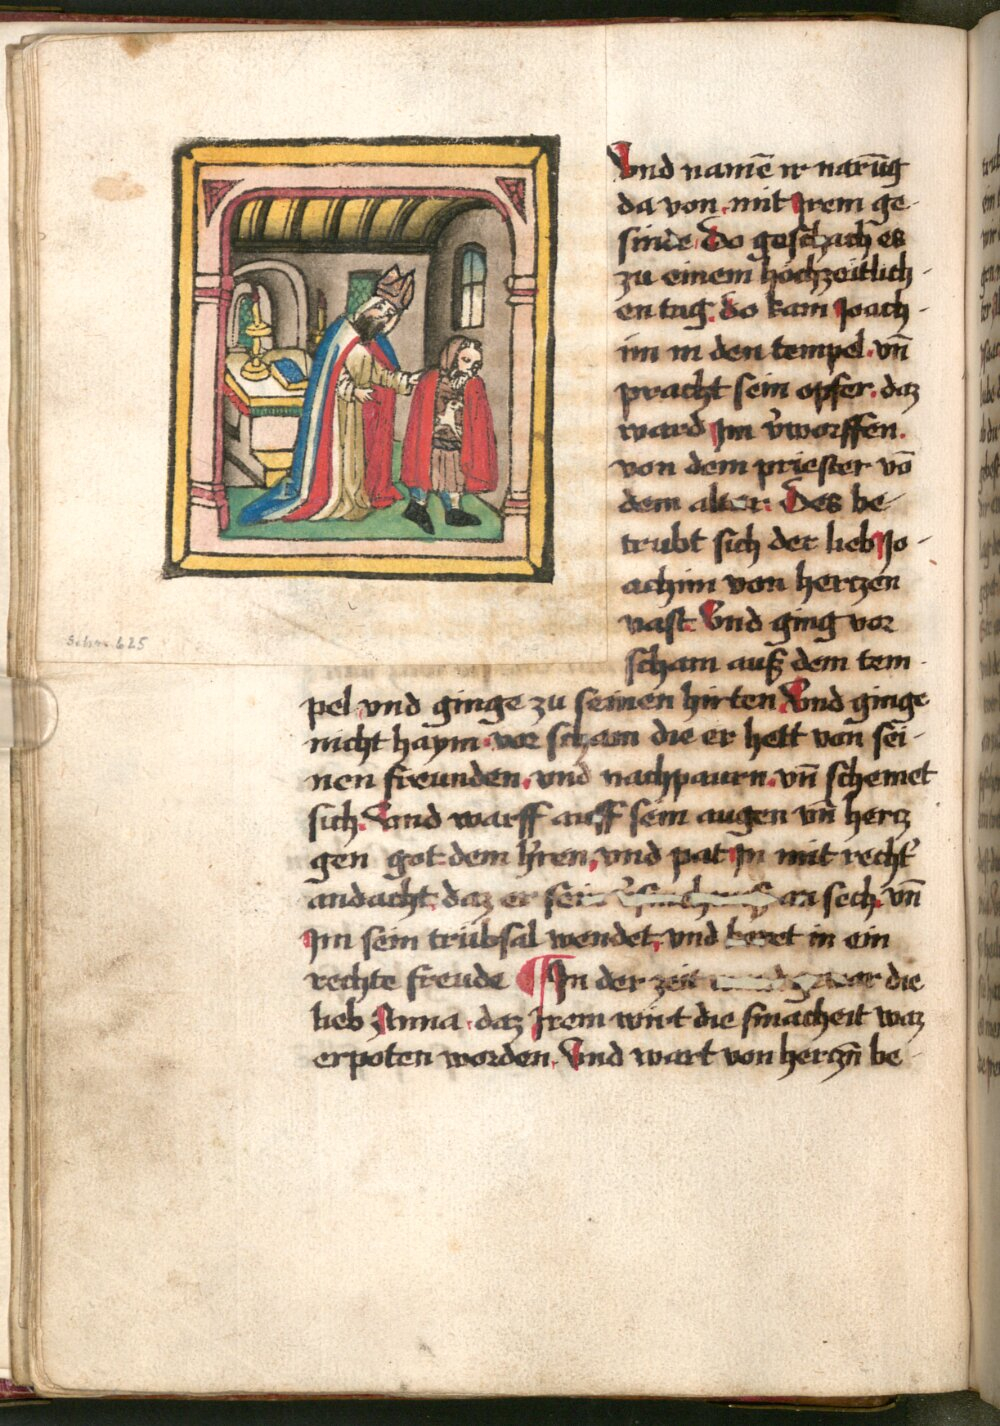 Vnd namē ir narūg
da von. mit Irem ge-
sinde. Do geschach es
zu einem hochzeitlich-
en tag. do kam Joach-
im in den tempel. vn̄
pracht sein opfer. daz
ward Im v̓worffen.
von dem priester vō
dem alter. Des be-
trubt sich der lieb Jo-
achim von hertzen
vast. Vnd ging vor
scham auß dem tem-
pel vnd ginge zu seinen hirten. Vnd ginge
nicht haym. vor scham die er hett von sei-
nen freunden. vnd nachpaurn. vn̄ schemet
sich. Vnd warff auff sein augen vn̄ hertz
gen got dem h̓ren, vnd pat In mit recht̓
andacht. daz er sein an sech. vn̄
Im sein trübsal wendet, vnd keret in ein
rechte freude ¶ In der zeit die
lieb Anna. daz Irem wirt die smacheit waz
erpoten worden. Vnd wart von hertzn̄ be-
Schr. 625